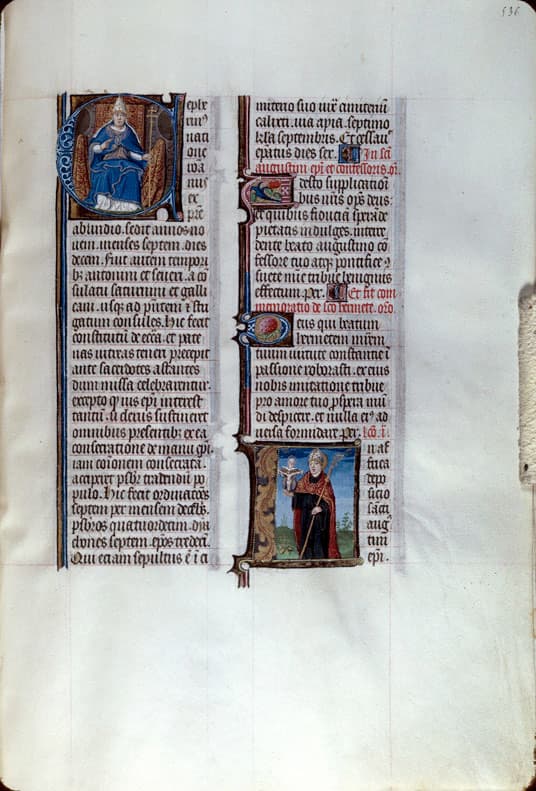 536
eplx
rin⁹
nati
one
roa
nus
ex
pre
abundio. sedit annos no
uem. menses septem. dies
decem. fuit autem tempori
b; antonini et seueri. a co
sulatu saturnini et galli
cani. usq; ad
consules. Hic fecit
constitutu de ecca. et pate
nas uitreas teneri precepit
ante sacerdotes astantes
dum missa celebrarentur.
excepto q ius epi interest
tantu. ut clerus sustineret
omnibus presentib;. ex ea
consecratione de manu epi
iam coronem consecrata.
acciperet psbr tradendu po
pulo. Hic fecit ordinacoes
septem per mensem decebr.
psbros quatuordecim. dya
cones septem. epos tredeci.
Qui etiam sepultus e i ci
miterio suo iuxta cimiteriu
calixti. uia apia. septimo
kłas septembris. Et cessau
epatus dies sex. In sci
augustini epi et confessoris. or.
Adesto supplicatioi
bus nris ops deus.
et quibus fiducia sperade
pietatis indulges. interce
dente beato augustino co
fessore tuo atq; pontifice
suete mie tribue benignus
effectum. per. Et fit com
memoratio de sco hermete. oro.
Deus qui beatum
hermetem mrem
tuum uirtute constantie i
passione roborasti. ex eius
nobis imitatione tribue
pro amore tuo prospera mu
di despicere. et nulla ei⁹ ad
uersa formidare. per.
In af
frica
depo
sitio
sacti
aug
tini
epi.